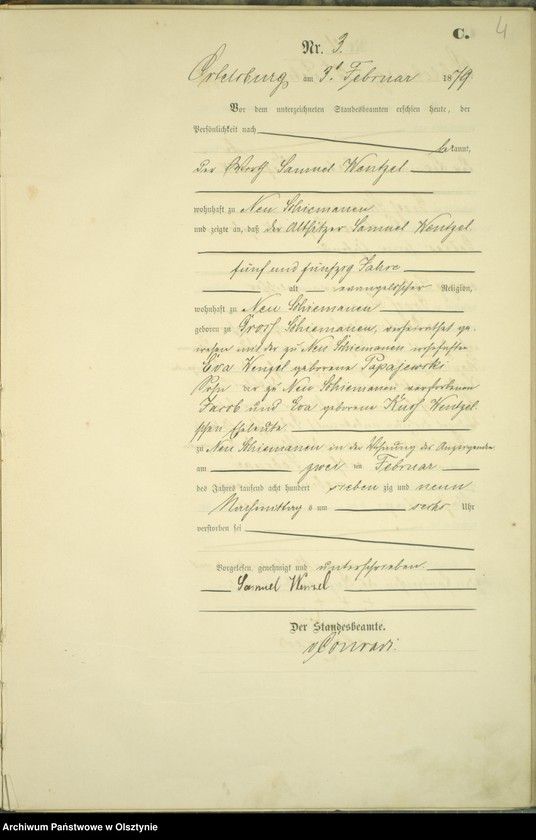 4
C.
Nr. 3.
Ortelsburg am 3t Februar 1879
Vor dem unterzeichneten Standesbeamten erschien heute, der
Persönlichkeit nach
bekannt,
der Wirth Samuel Wentzel
wohnhaft zu Neu Schiemanen
und zeigte an, daß der Altsitzer Samuel Wentzel
fünf und fünfzig Jahre
alt evangelischer Religion,
wohnhaft zu Neu Schiemanen
geboren zu Gross Schiemanen, verheirathet ge-
wesen mit der zu Neu Schiemanen wohnhaften
Eva Wenzel geborene Papajewski
Sohn der zu Neu Schiemanen verstorbenen
Jacob und Eva geborene Wentzel
schen Eheleute
zu Neu Schiemanen in der Wohnung des Anzeigenden
am zwei ten Februar
des Jahres tausend acht hundert sieben zig und neun
Nachmittag s um sechs Uhr
verstorben sei
Vorgelesen, genehmigt und unterschrieben.
Samuel Wenzel
Der Standesbeamte.
Conradi.
Archiwum Państwowe w Olsztynie